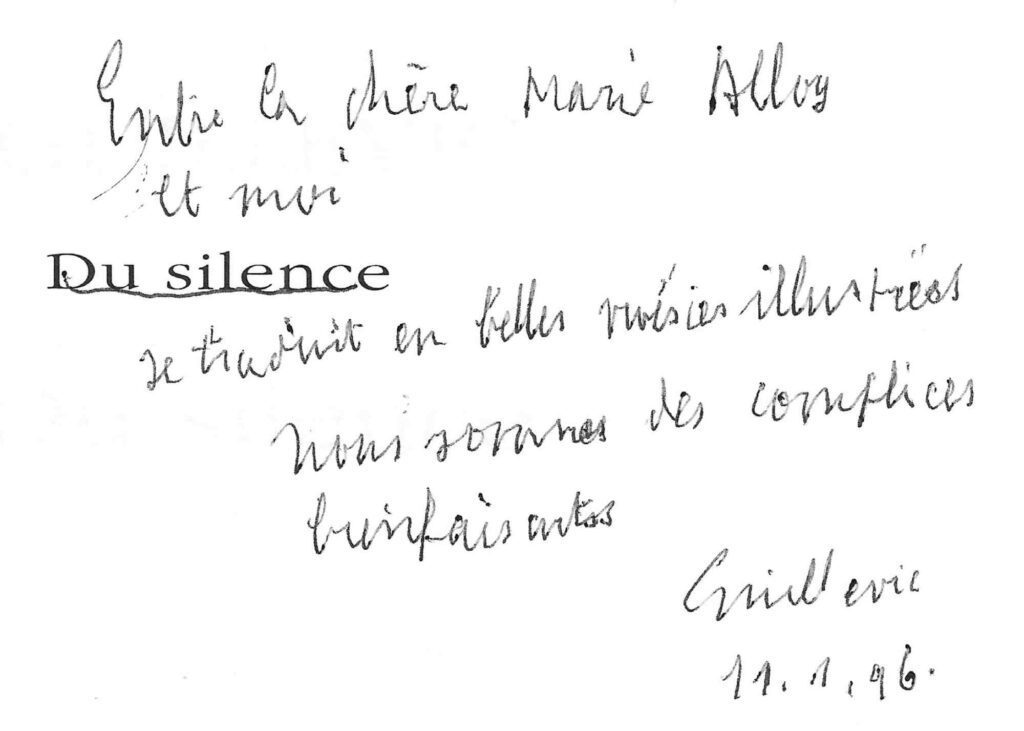 Entre la chère Marie Alloy
et moi
Du silence
se traduit en belles poésies illustrées
nous sommes des complices
bienfaisants
Guillevic
11.1.96.